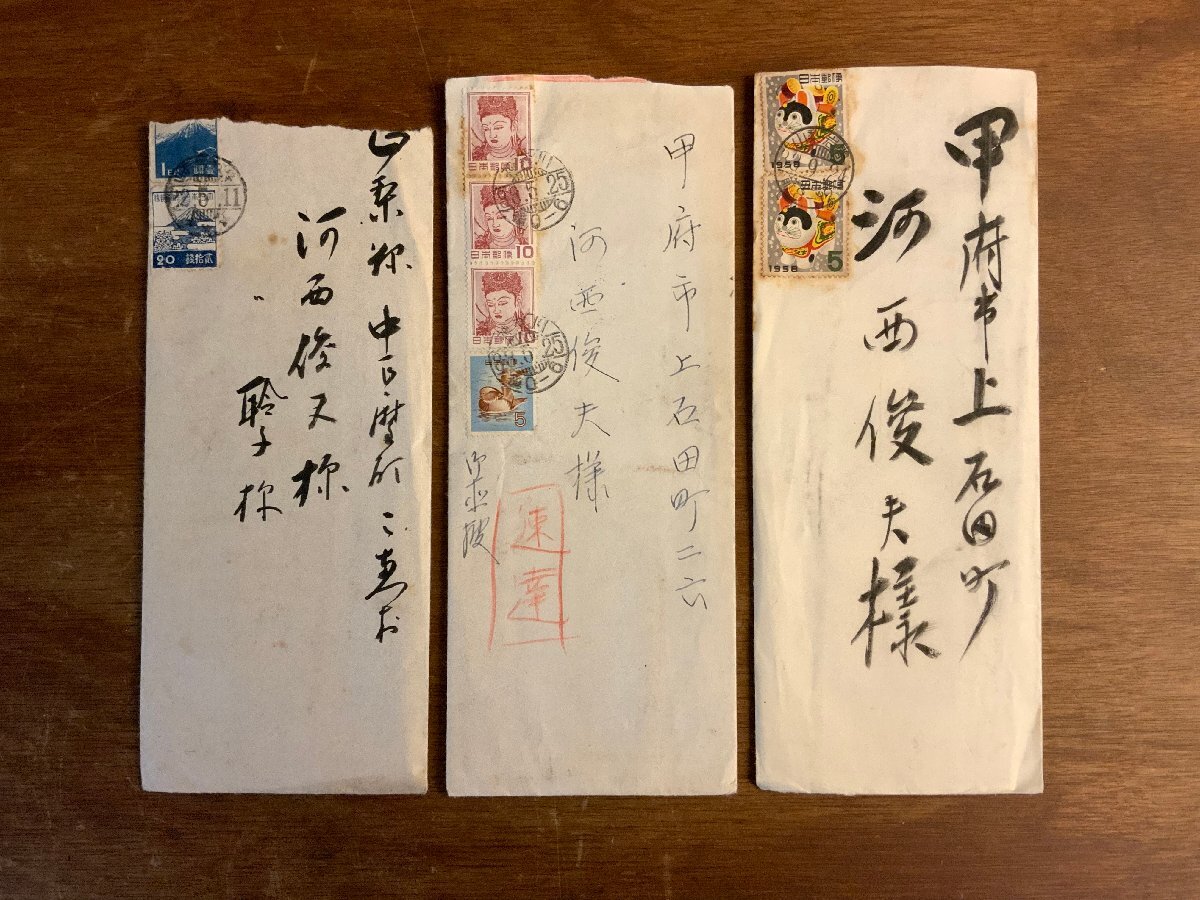 山梨縣 中巨摩郡
河西俊夫様
〃 聆子様
1
壹圓
2.5.11
20
貳拾錢
甲府市上石田町二六
河西俊夫様
速達
日本郵便
10
日本郵便
10
日本郵便
10
5
25
25
甲府市上石田町
河西俊夫様
日本郵便
5
1958
日本郵便
5
1958